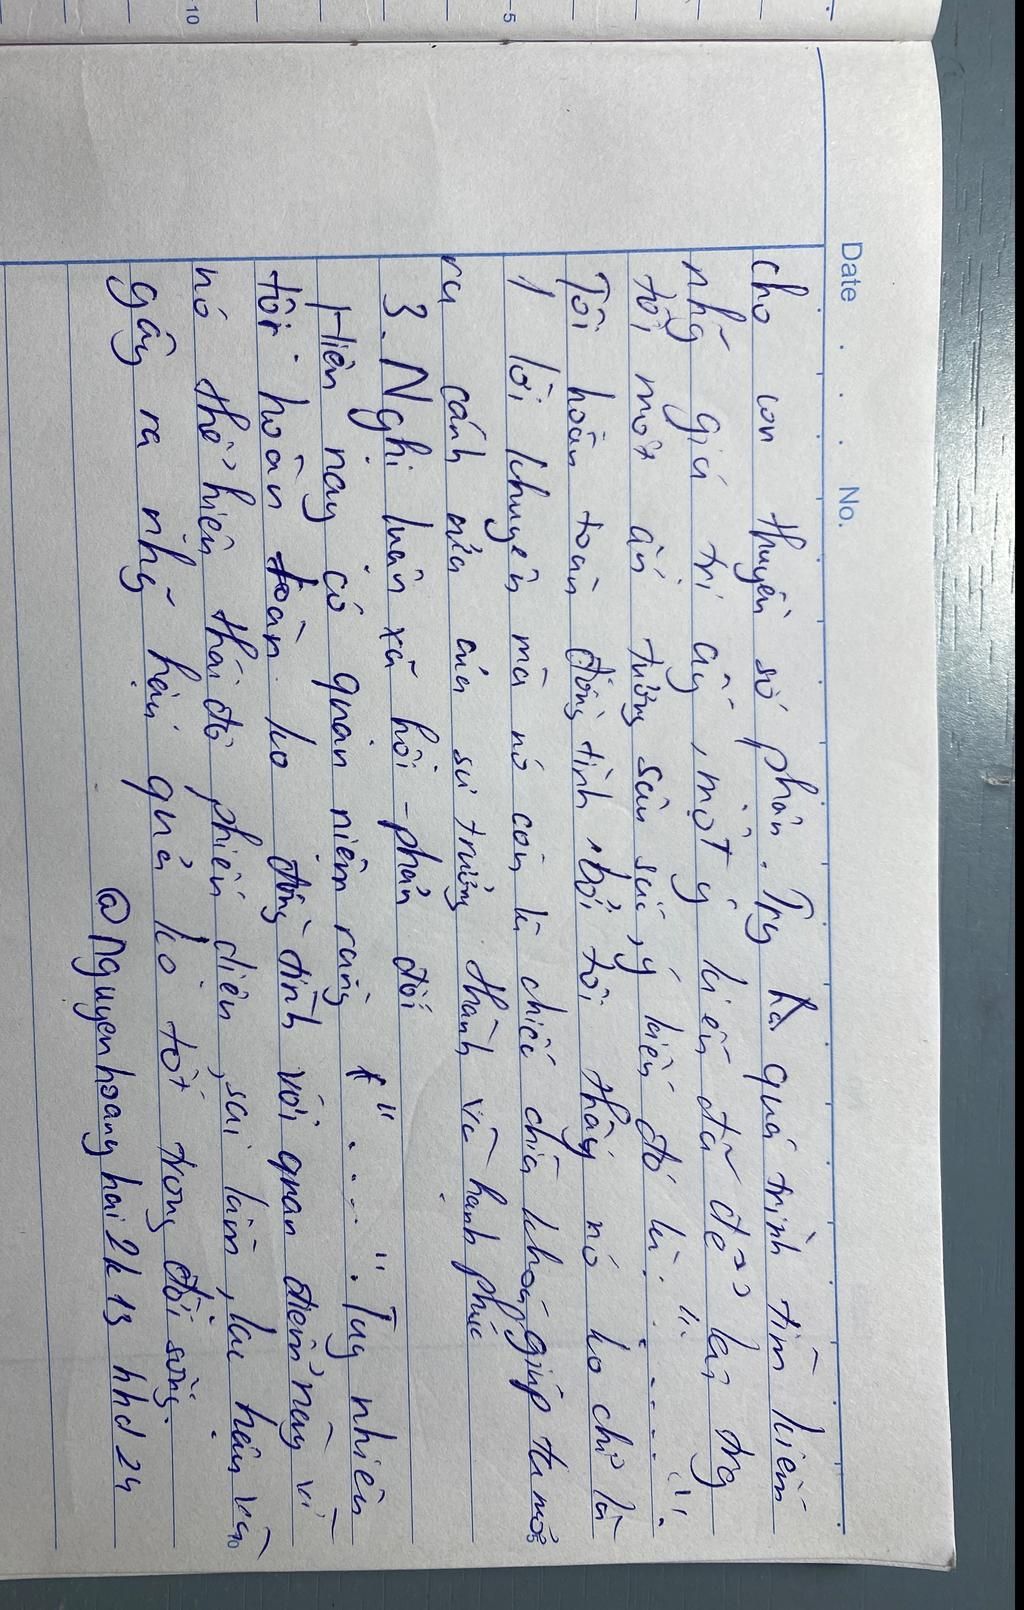 10
5
Date . . . No.
cho con thuyền số phận. Trg hà quá trình tìm kiếm
nhg~ giá trị ấy, một ý kiến đã để lại trg
tôi một ấn tượng sâu sắc, ý kiến đó là: "......".
Tôi hoàn toàn đồng tình, bởi tôi thấy nó ko chỉ là
1 lời khuyên mà nó còn là chiếc chìa khoá, giúp ta mở
ra cánh cửa của sự trưởng thành và hạnh phúc
3. Nghị luận xã hội - phản đối
Hiện nay có quan niệm rằng " ...." . Tuy nhiên
tôi hoàn toàn ko đồng tình với quan điểm này vì
nó thể hiện thái độ phiến diện, sai lầm, lạc hậu và
gây ra nhg~ hậu quả ko tốt trong đời sống.
@nguyenhoanghai2k13 hhd24